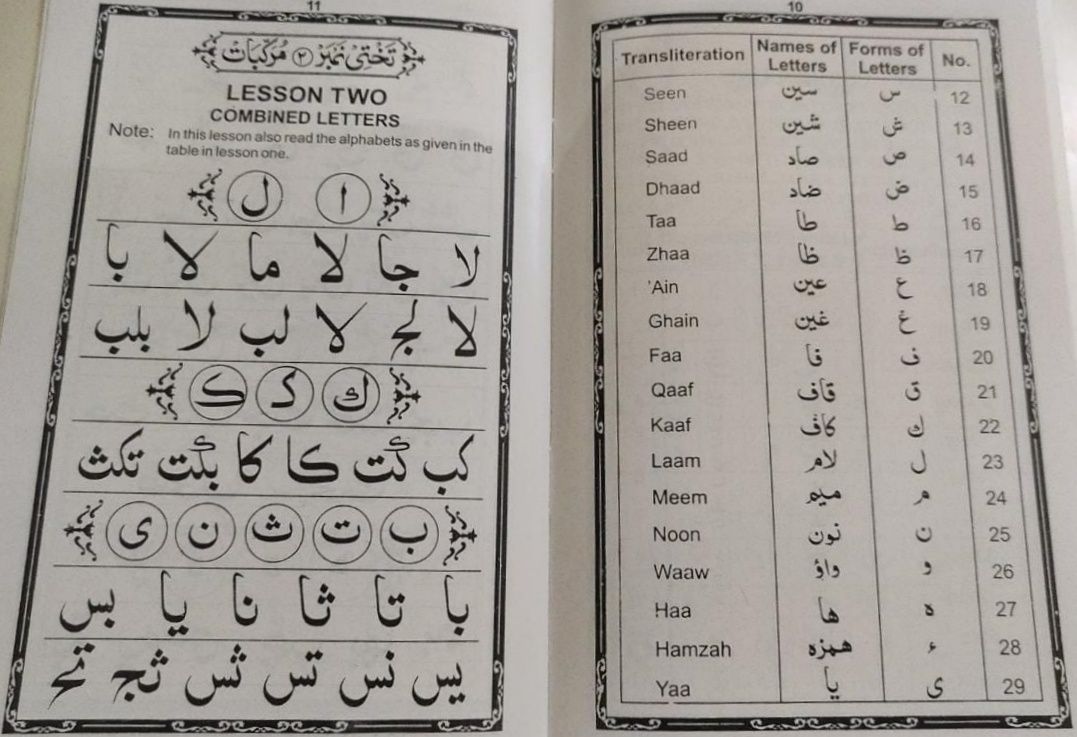 10
Transliteration Names of Letters Forms of Letters No.
Seen سين س 12
Sheen شين ش 13
Saad صاد ص 14
Dhaad ضاد ض 15
Taa طا ط 16
Zhaa ظا ظ 17
'Ain عين ع 18
Ghain غين غ 19
Faa فا ف 20
Qaaf قاف ق 21
Kaaf كاف ك 22
Laam لام ل 23
Meem ميم م 24
Noon نون ن 25
Waaw واؤ و 26
Haa ها ه 27
Hamzah همزه ء 28
Yaa يا ى 29
11
تَخْتِیْ نَمْبَرْ ۲ مُرَكَّبَاتْ
LESSON TWO
COMBiNED LETTERS
Note: In this lesson also read the alphabets as given in the
table in lesson one.
ا ل
لا جا لا ما لا با
لا لج لا لب لا بلب
ك ک ڪ
كب كت كا كا بكت تكث
ب ت ث ن ى
با تا ثا نا يا بس
يس نس تس ثس ثج تح